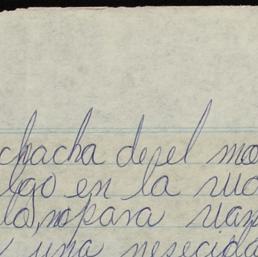 chacha depel mo
lgo en la ruo
la, no para vian
una nesecida